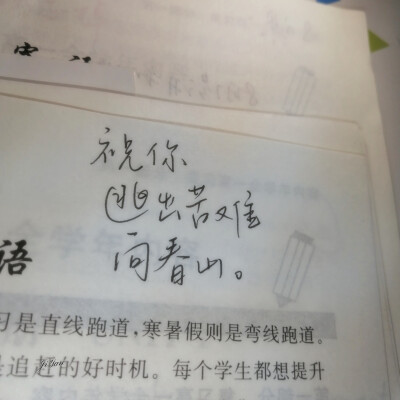 祝你
逃出苦难
向春山。
语
习是直线跑道,寒暑假则是弯线跑道。
是追赶的好时机。每个学生都想提升